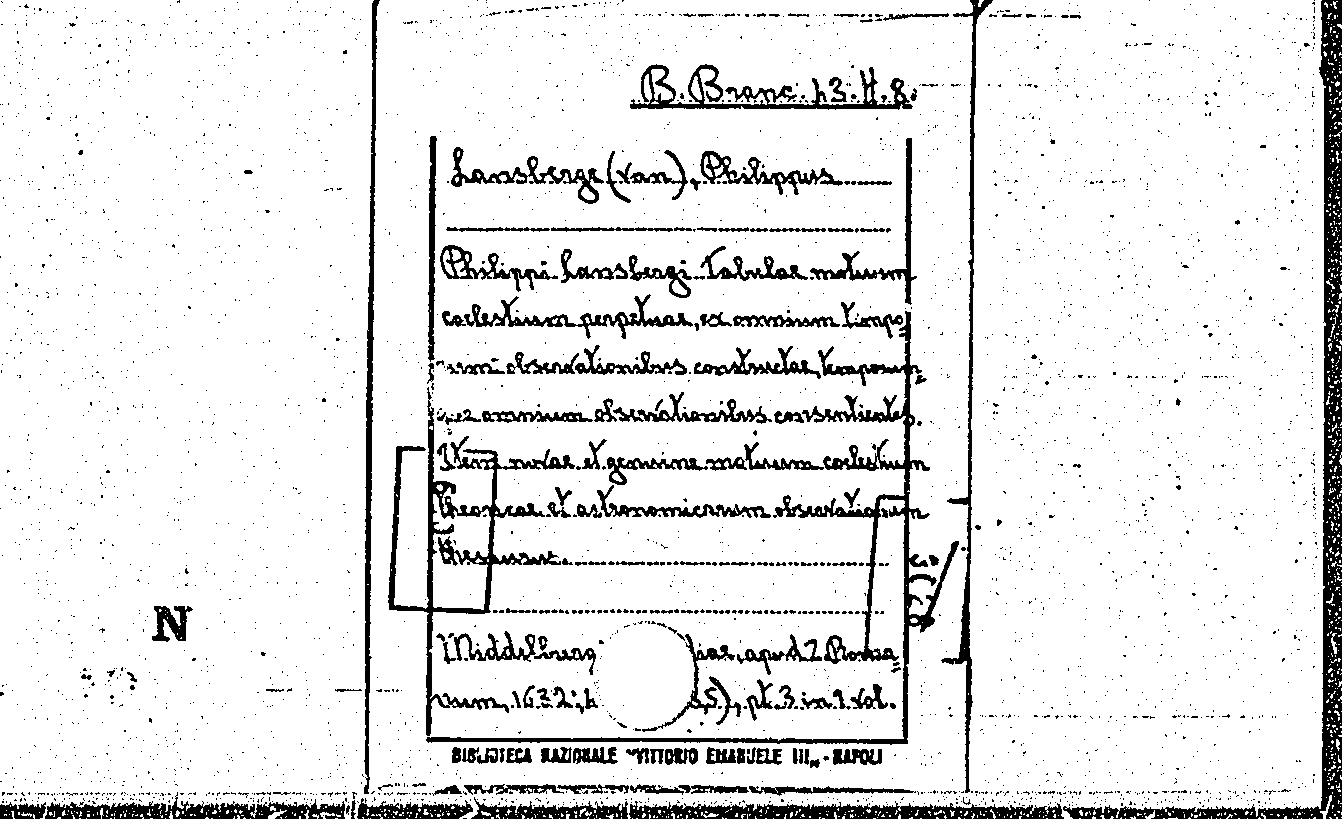 B. Branc. 43. H. 8.
Lansberge (van), Philippus
Philippi Lansbergi Tabulae motuum
coelestium perpetuae, ex omnium tempo=
rum observationibus constructae, temporum=
que omnium observationibus consentientes.
Item novae et genuinae motuum coelestium
theoricae et astronomicarum observationum
thesaurus.
N
Middelburgi diae, apud Z. Roma=
num, 1632; s,s), pt. 3 in 1 vol.
BIBLIOTECA NAZIONALE "VITTORIO EMANUELE III" - NAPOLI